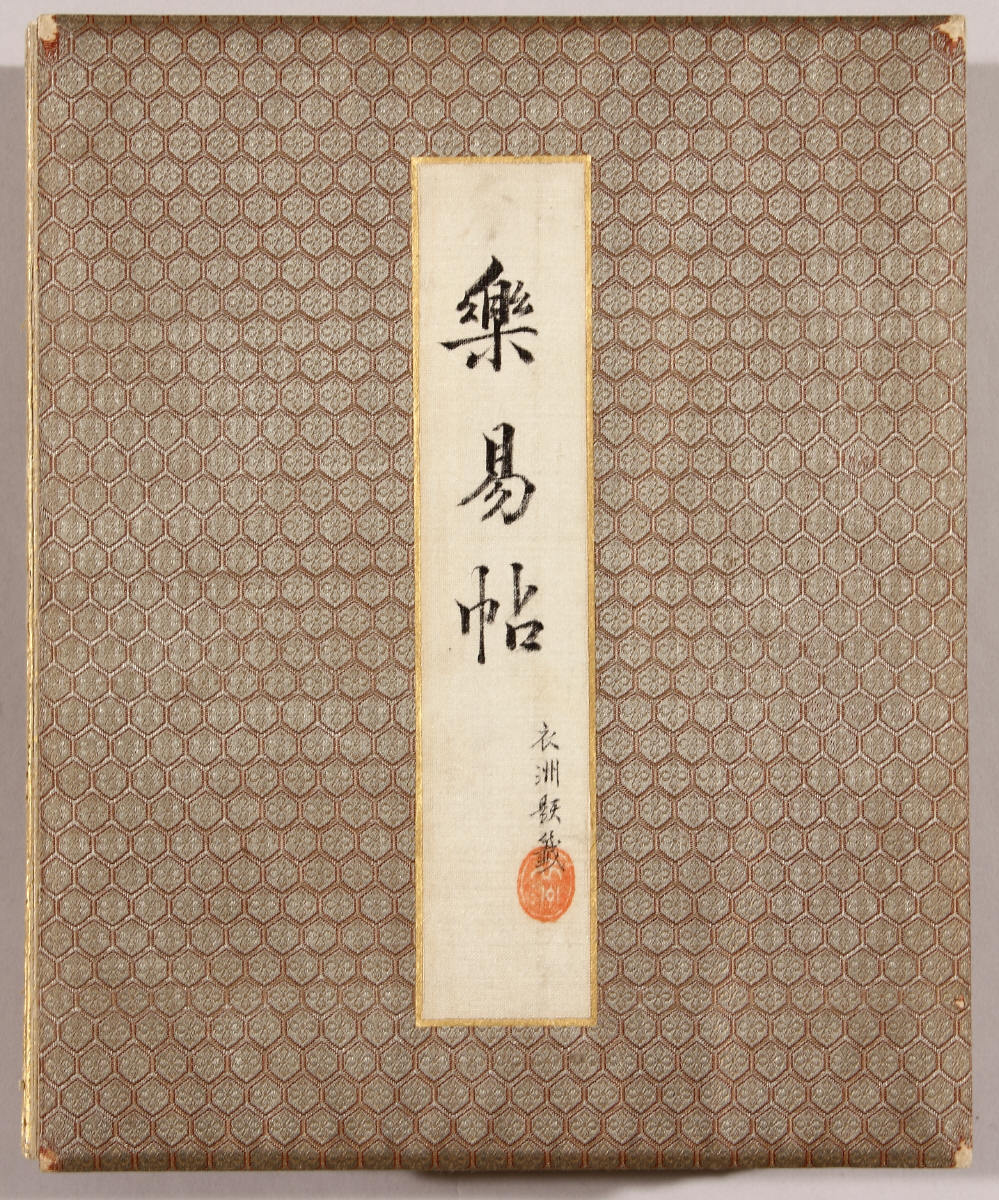 樂易帖
衣洲題籤